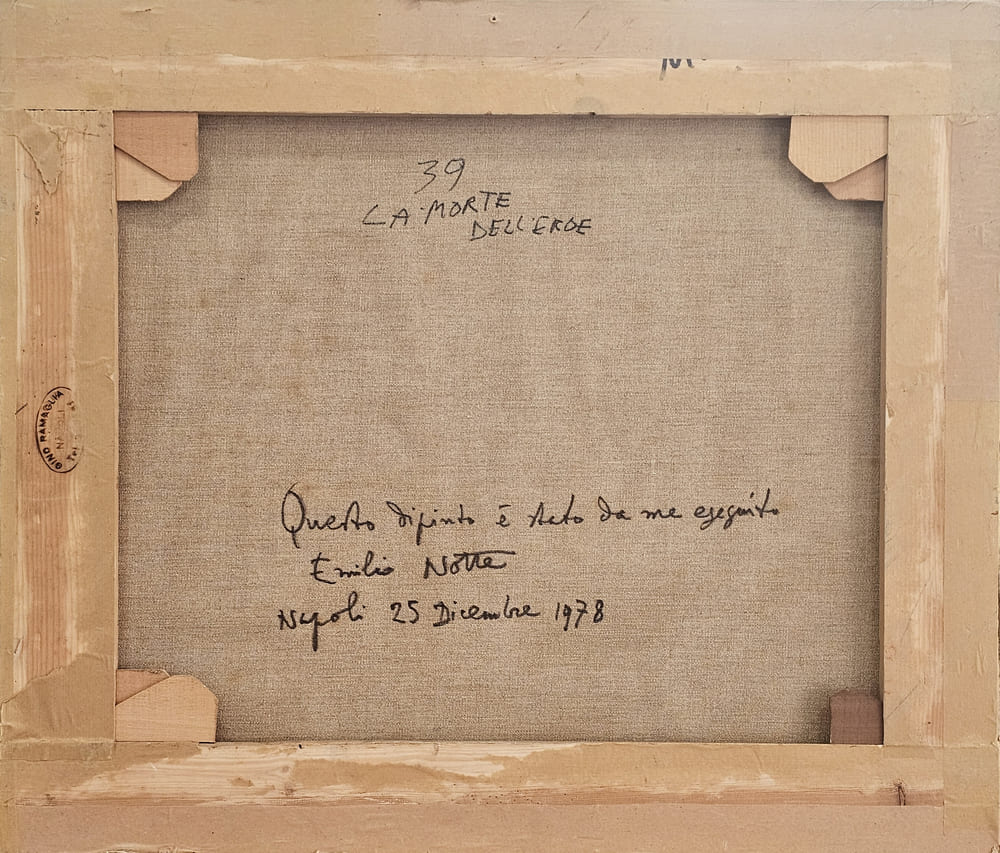 39
LA MORTE
DELL'EROE
GINO RAMAGLIA
NAPOLI
Tel
Questo dipinto è stato da me eseguito
Emilio Notte
Napoli 25 Dicembre 1978